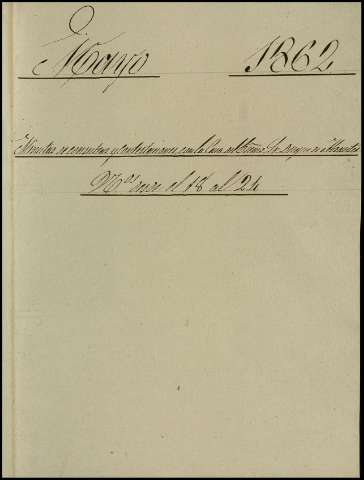 Mayo 1862
Minutas de consultas y contestaciones con la Casa del Excmo. Sr. Duque de Abrantes
Nos. desde el 18 al 24